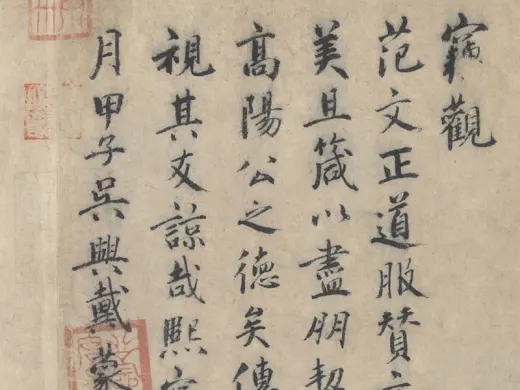 竊觀
范文正道服贊
美且箴以盡朋
髙陽公之德矣傳
視其友諒哉熙
月甲子吳興戴蒙